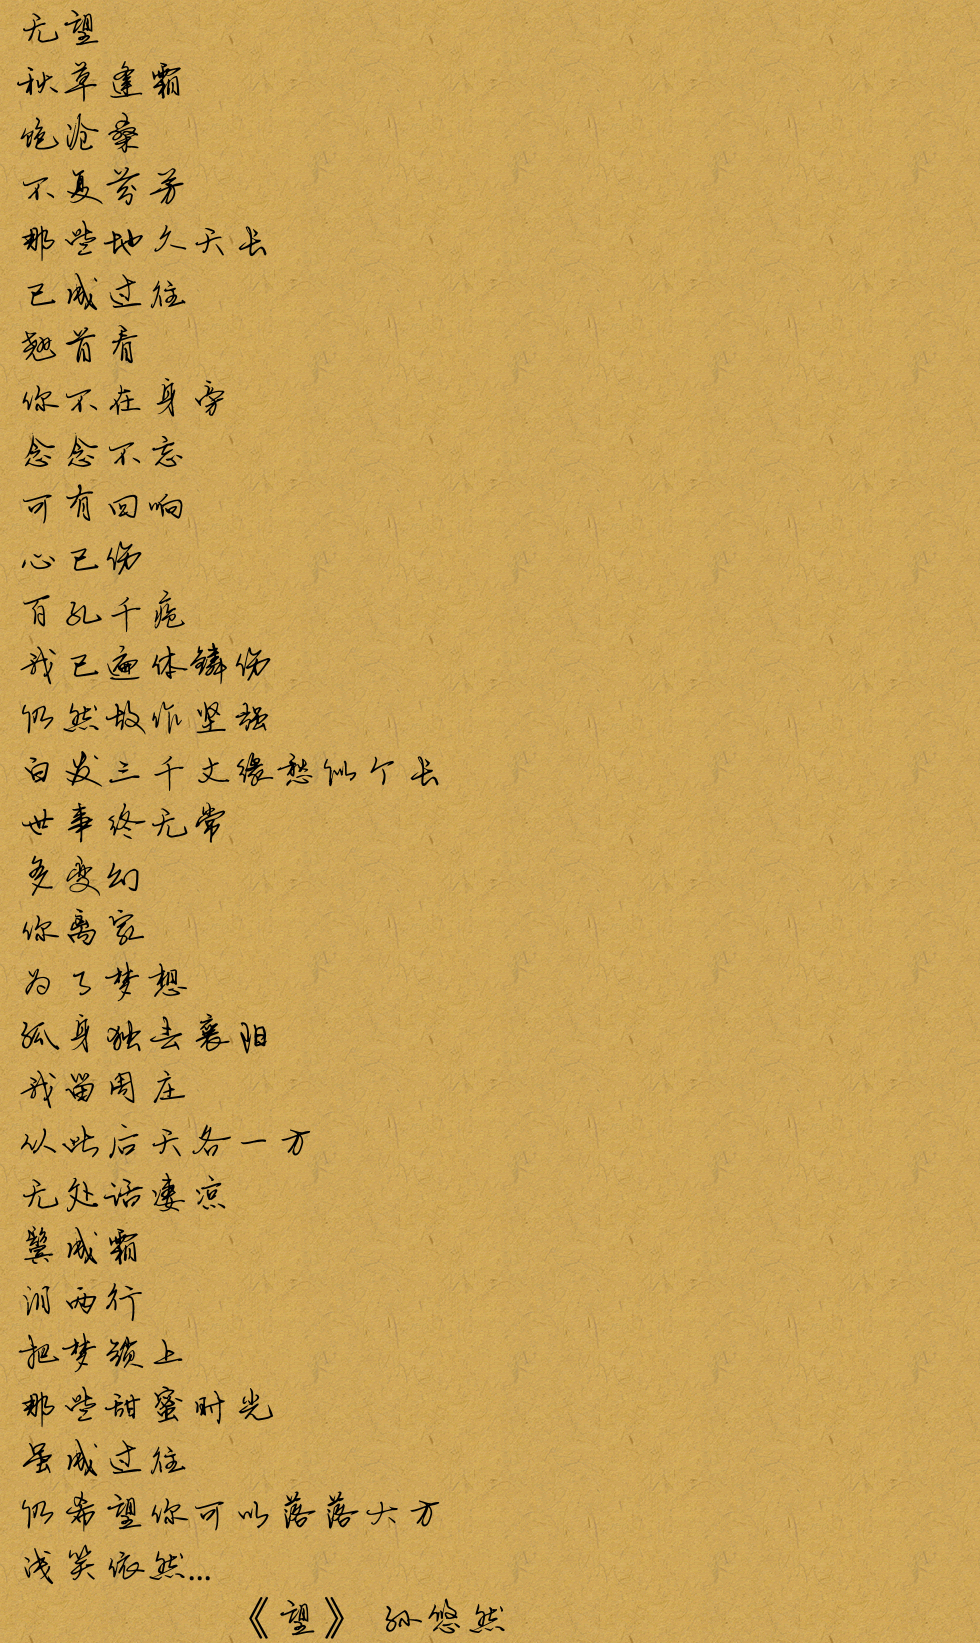 无望
秋草逢霜
饱沧桑
不复芬芳
那些地久天长
已成过往
翘首看
你不在身旁
念念不忘
可有回响
心已伤
百孔千疮
我已遍体鳞伤
仍然故作坚强
白发三千丈缘愁似个长
世事终无常
多变幻
你离家
为了梦想
孤身独去襄阳
我留周庄
从此后天各一方
无处话凄凉
鬓成霜
泪两行
把梦锁上
那些甜蜜时光
虽成过往
仍希望你可以落落大方
浅笑依然...
《望》 孙悠然